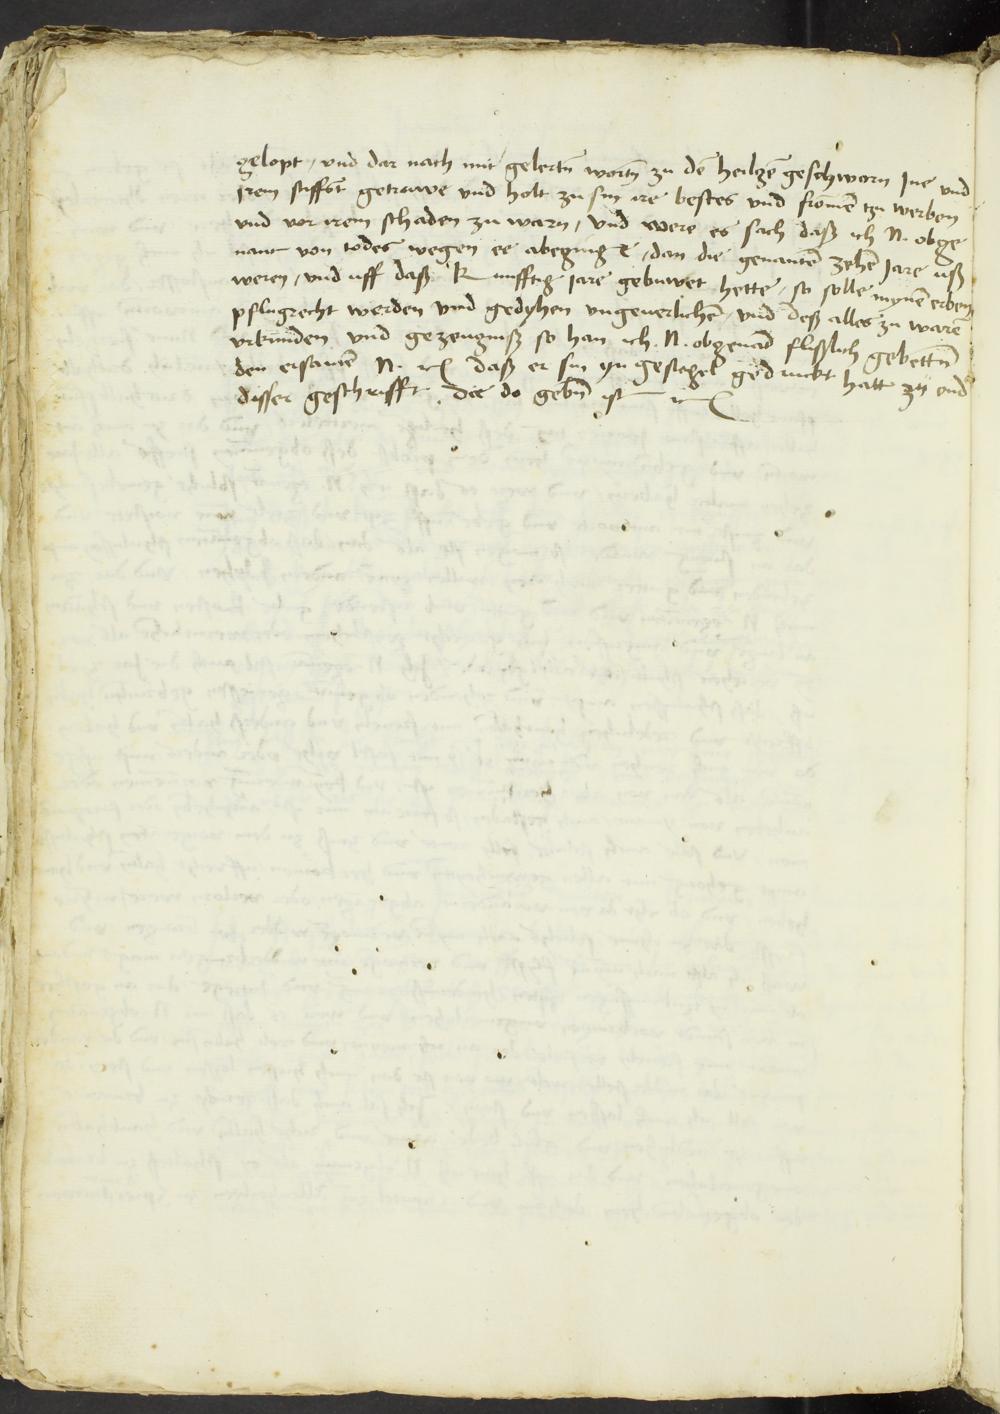 gelopt / vnd dar nach mit gelertñ wortñ zu dē heilgē geschworn Ine vnd
Irem stifft getruwe vnd holt zu sin ire bestes vnd fromē tzu werben
vnd vor irem schaden zu warn / vnd were es sach daß ich N. obge
nant von todes wegen ee abeging / dan die genantē zehē Jare uß
weren / vnd uff daß kunfftig jare gebuwet hette / so solle mynē erben
pflugrecht werden vnd gedyhen vngeuerlichē / vnd deß alles zu ware
vrkunden vnd gezeugniß so han ich N. obgenād flißlich gebettñ
den ersamē N. daß er sin yngesiegel gedruckt hatt zu end
disser geschrifft . die do gebñ ist